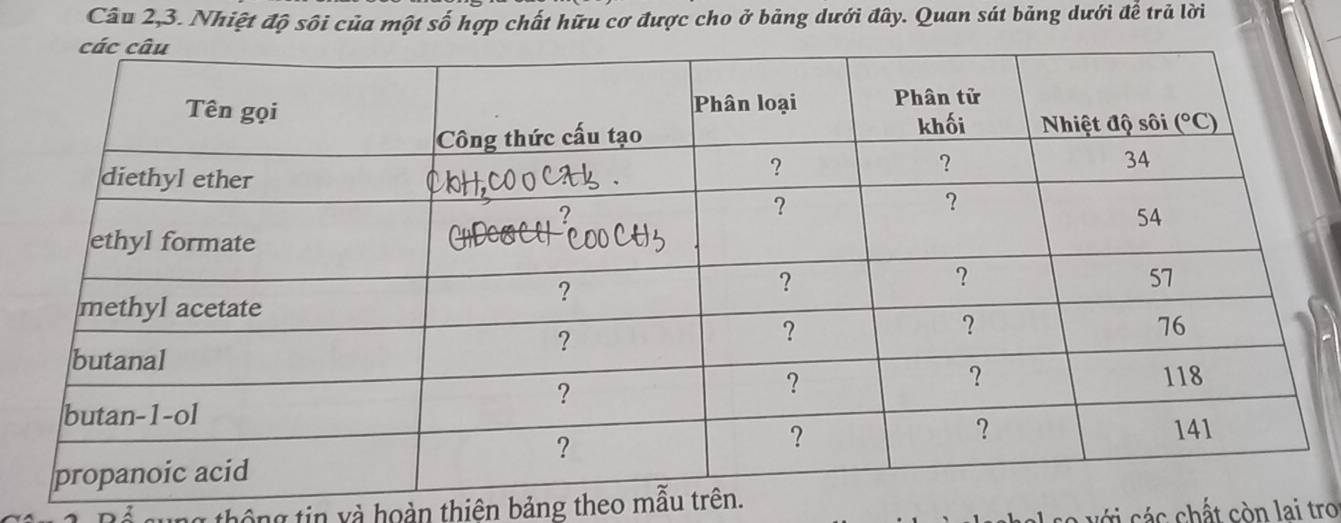 Câu 2,3. Nhiệt độ sôi của một số hợp chất hữu cơ được cho ở bảng dưới đây. Quan sát bảng dưới để trả lời
các câu
Tên gọi Công thức cấu tạo Phân loại Phân tử khối Nhiệt độ sôi (°C)
diethyl ether ? ? 34
ethyl formate ? COOCH3 ? ? 54
methyl acetate ? ? ? 57
butanal ? ? ? 76
butan-1-ol ? ? ? 118
propanoic acid ? ? ? 141
thông tin và hoàn thiện bảng theo mẫu trên.
so với các chất còn lại